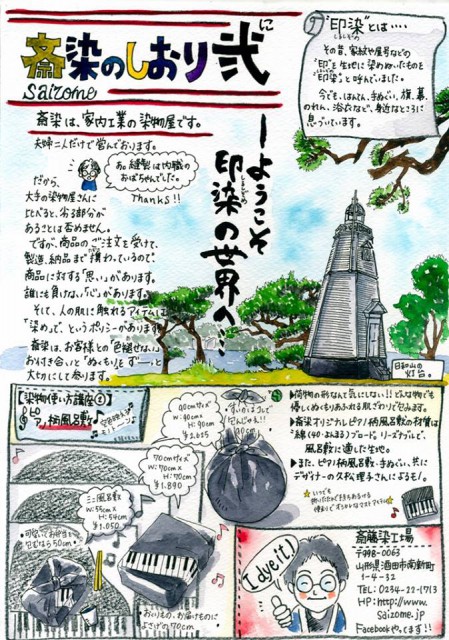 斎染のしおり 弐
に
saizome
斎染は、家内工業の染物屋です。
夫婦二人だけで営んでおります。
あ。縫製は内職の
おばちゃんでした。
Thanks!!
だから、
大手の染物屋さんに
比べると、劣る部分が
あることは否めません。
ですが、商品のご注文を受けて、
製造、納品まで携わっているので、
商品に対する「思い」があります。
誰にも負けない「心」があります。
そして、人の肌に触れるアイテムは
「染め」で、というポリシーがあります。
斎染は、お客様との“色褪せない”
お付き合いと“ぬくもり”を ず──っと
大切にして参ります。
ーようこそ
印染の世界へ…
しるしぞめ
“印染”とは・・・
しるしぞめ
その昔、家紋や屋号などの
“印”を生地に染めぬいたものを
“印染”と呼んでいました。
今でも、はんてん、手ぬぐい、旗、幕、
のれん、浴衣など、身近なところに
息づいています。
日和山の
灯台。
【染物使い方講座②】
ピアノ柄風呂敷
90cmサイズ
W:90cm
H:90cm
70cmサイズ
W:70cm
H:70cm
¥1,890
ミニ風呂敷
W:55cm
H:54cm
¥1,050
▶荷物の形なんて気にしない!!どんな物でも
優しくぬくもりあふれる肌ざわりで包みます。
▶斎染オリジナルピアノ柄風呂敷の材質は
“綿(40・まんまる)ブロード”。リーズナブルで、
風呂敷に適した生地。
▶また、ピアノ柄風呂敷・手ぬぐい、共に
デザイナーの久松理子さんによるモノ。
I dye it!
斎藤染工場
〒998-0063
山形県酒田市南新町
1-4-32
TEL:0234-22-1713
HP:http://www.
saizome.jp
Facebookやってます!!